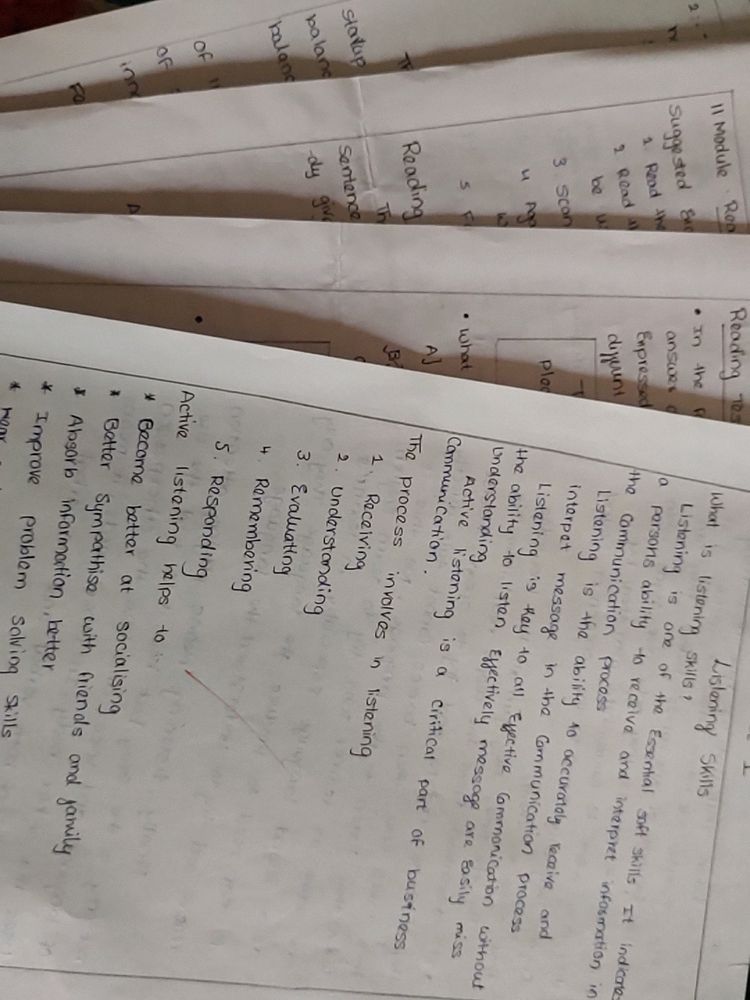 1
Listening Skills
What is listening skills?
Listening is one of the Essential soft skills. It indicates
a persons ability to receive and interpret information in
the communication process
Listening is the ability to accurately receive and
interpret message in the communication process
Listening is key to all Effective communication without
the ability to listen Effectively message are Easily miss
understanding
Active listening is a ciritical part of business
Communication.
The process involves in listening
1. Receiving
2. Understanding
3. Evaluating
4 Remembering
5. Responding
Active listening helps to :
* Become better at socialising
* Better Sympathise with friends and family
* Absorb information better
* Improve problem solving skills
Reading Tes
• In the
answer
Expressed
diffrent
• What
A]
B]
II Module Rea
Suggested
1. Read the
2 Read
be
3. Scan
4
5
Reading
Th
Sentence
-dy give
startup
balanc
balanc
of
of